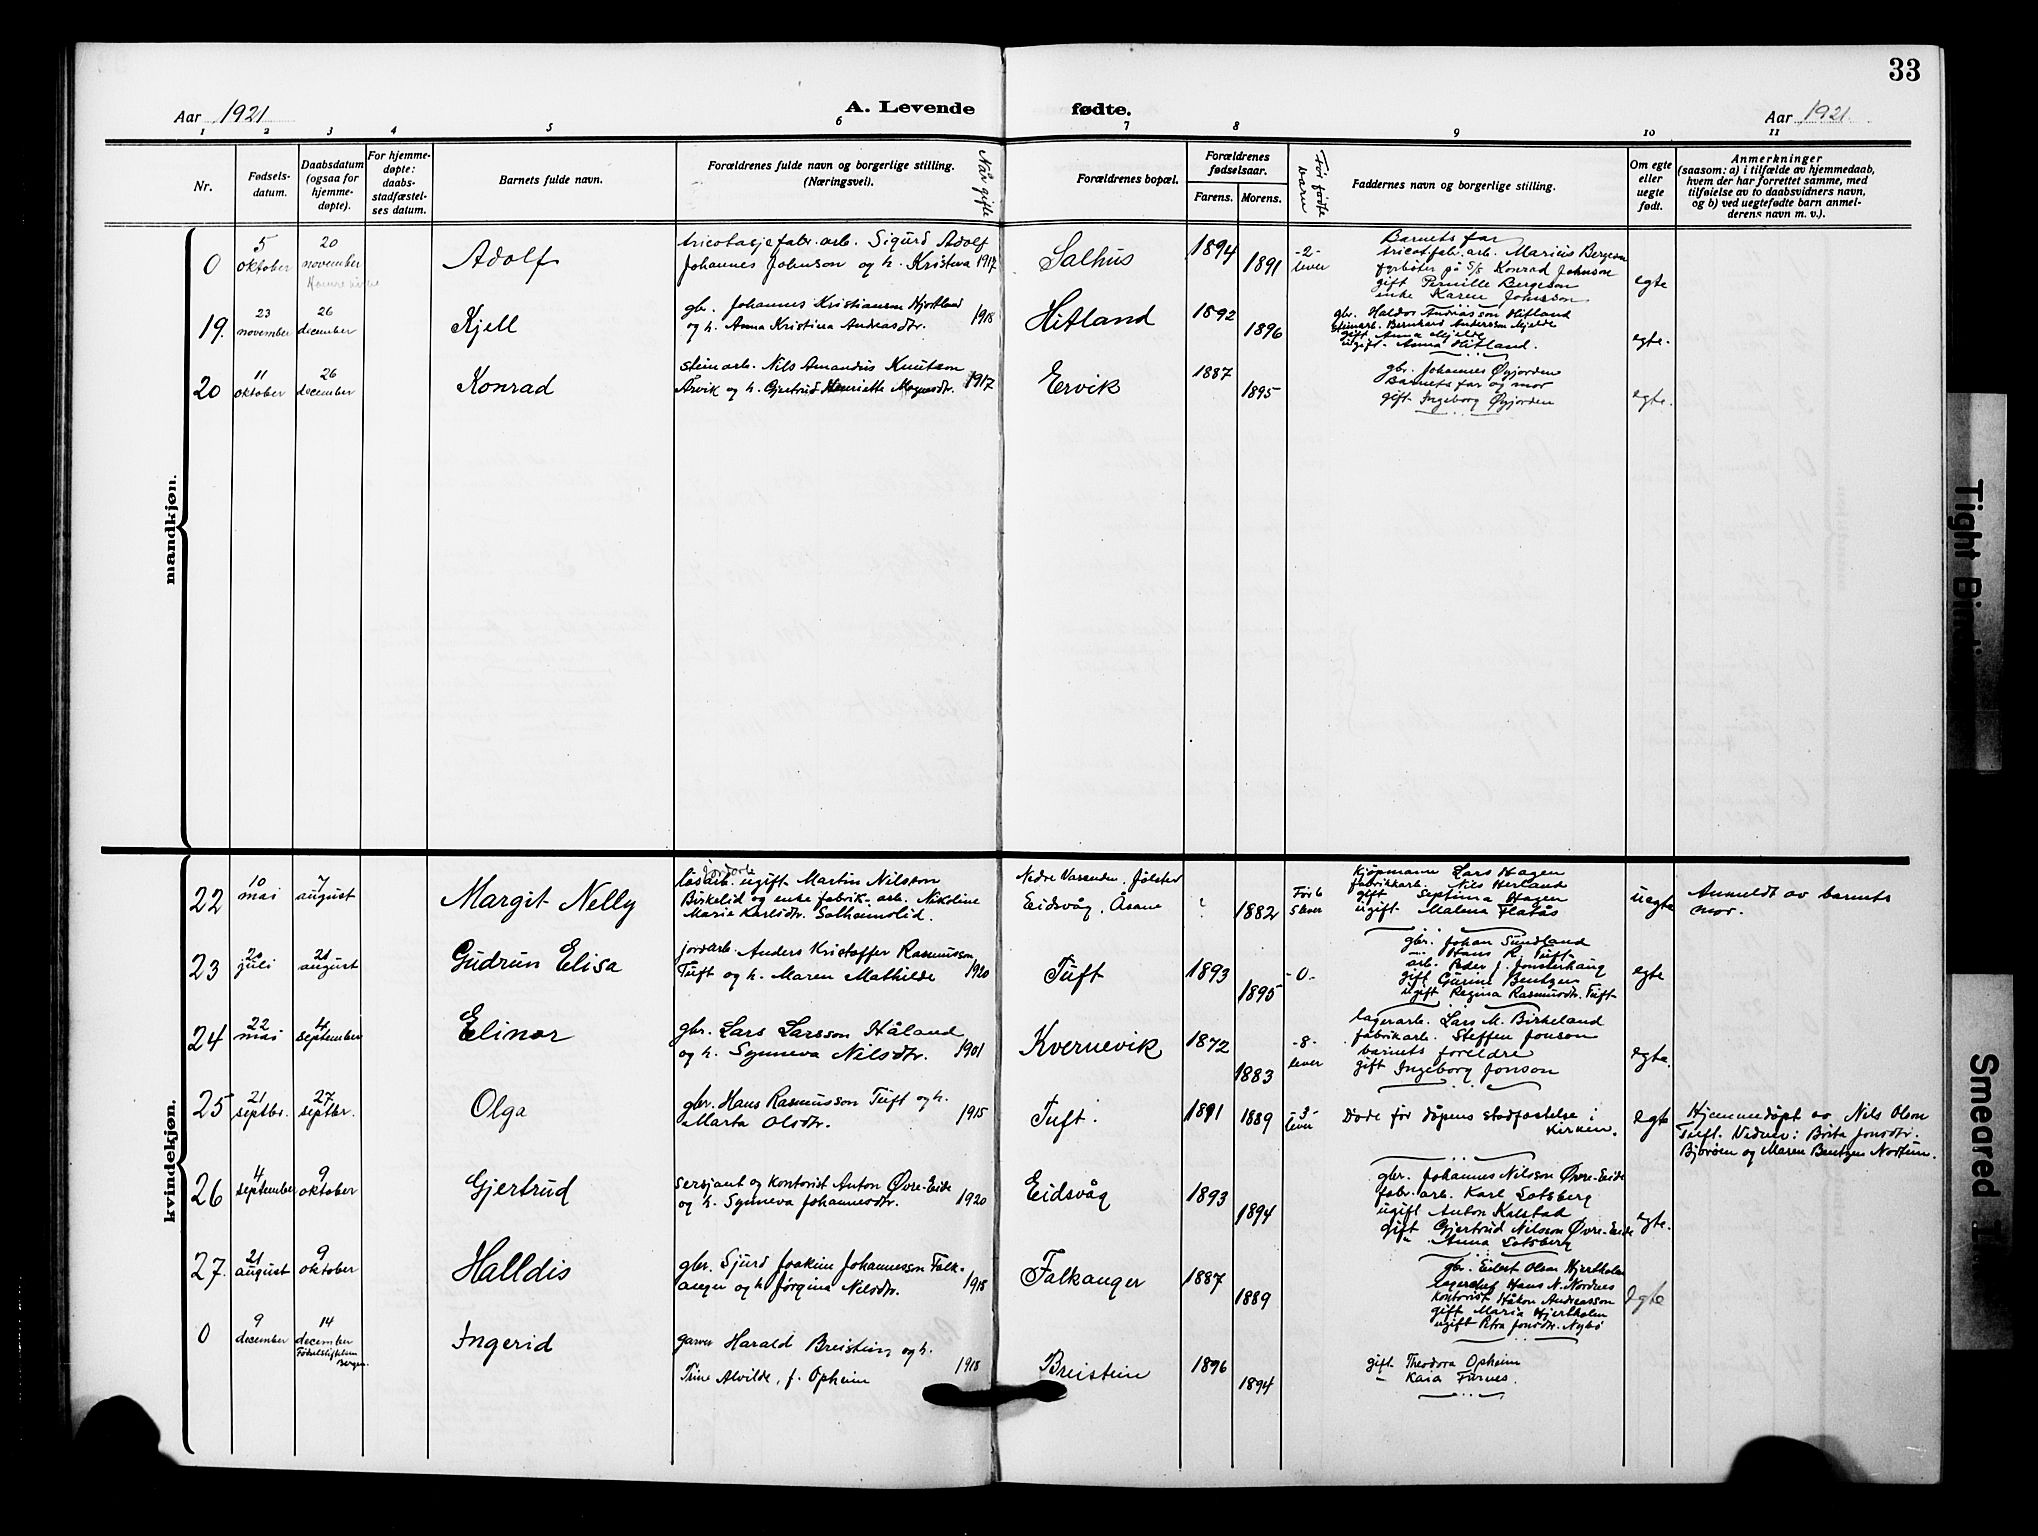 33
Aar 1921
A. Levende fødte.
Aar 1921.
1 2 3 4 5 6 7 8 9 10 11
Nr.
Fødsels-
datum.
Daabsdatum
(ogsaa for
hjemme-
døpte).
For hjemme-
døpte:
daabs-
stadfæstel-
ses datum.
Barnets fulde navn.
Forældrenes fulde navn og borgerlige stilling.
(Næringsvei).
Når gifte
Forældrenes bopæl.
Forældrenes
fødselsaar.
Farens. Morens.
Før fødte
barn
Faddernes navn og borgerlige stilling.
Om egte
eller
uegte
født.
Anmerkninger
(saasom: a) i tilfælde av hjemmedaab,
hvem der har forrettet samme, med
tilføielse av to daabsvidners navn,
og b) ved uegtefødte barn anmel-
derens navn m. v.).
mandkjøn.
0
5
oktober
20
november
Adolf
tricotasjefabr. arb. Sigurd Adolf
Johannes Johnson og h. Kristena 1917
Salhus
1894
1891
-2-
lever
Barnets far
tricotfabr. arb. Marius Bergeson
fyrbøter på S/S Konrad Johnson
gift Pernille Bergeson
enke Karen Johnsson
egte
19.
23
november
26
december
Kjell
gbr. Johannes Kristiansen Hjortland
og h. Anna Kristina Andreasdtr. 1918
Hitland
1892
1896
gbr. Haldor Andreasson Hitland
steinarb. Bernhard Andersson Mjelde
gift Anna Mjelde
ugift Anna Hitland.
egte.
20
11
oktober
26
december
Konrad
steinarb. Nils Amandus Knutson
Årvik og h. Gjertrud Henriette Magnusdtr. 1917
Ervik
1887
1895
gbr. Johannes Øygjorden
Barnets far og mor
gift Ingeborg Øygjorden
egte.
kvindekjøn.
22
10
mai
7
august
Margit Nelly
løsarb. ugift Martin Nilsson
Birkelid og enke fabrik-arb. Nikoline
Marie Karlsdtr. Solheimslid.
Nedre Vassenden, Jølster
Eidsvåg, Åsane
?
1882
Før 6
5 lever
kjøpmann Lars Hagen
fabrikkarb. Nils Herland
gift Septima Hagen
ugift Malena Flatås
uegte
Anmeldt av barnets
mor.
23
20
juli
21
august
Gudrun Elisa
jordarb. Anders Kristoffer Rasmusson
Tuft og h. Maren Mathilde 1920
Tuft
1893
1895
-0-
gbr. Johan Sundland
Hans R. Tuft
arb. Peder J. Jonsterhaug
gift Gurine Bentzen
ugift Regina Rasmusdtr. Tuft
egte
24
22
mai
4
september
Elinor
gbr. Lars Larsson Håland
og h. Synneva Nilsdtr. 1901
Kvernevik
1872
1883
-8-
lever
lagerarb. Lars M. Birkeland
fabrikarb. Steffen Jonson
barnets foreldre
gift Ingeborg Jonson
egte.
25
21
septbr.
27
septbr.
Olga
gbr. Hans Rasmusson Tuft og h.
Marta Olsdtr. 1915
Tuft.
1891
1889
-3-
lever
Døde før dåpens stadfestelse i
kirken.
egte
Hjemmedøpt av Nils Olson
Tuft. Vidner: Brita Jonsdtr.
Bjørøen og Maren Bentzen Nortun.
26
4
september
9
oktober
Gjertrud
sersjant og kontorist Anton Øvre-Eide
og h. Synneva Johannesdtr. 1920
Eidsvåg
1893
1894
gbr. Johannes Nilsson Øvre-Eide
fabr. arb. Karl Lotsberg
ugift Anton Kalstad
gift Gjertrud Nilsson Øvre-Eide
" Anna Lotsberg
egte.
27.
21
august
9
oktober
Halldis
gbr. Sjurd Joakim Johannesson Falk-
anger og h. Jørgina Nilsdtr. 1918
Falkanger
1887
1889
gbr. Eilert Olson Hjertholm
lagerchef Hans N. Nordnes
kontorist Håkon Andreasson
gift Maria Hjertholm
ugift Petra Jonsdtr. Nybø
Egte
0
9
december
14
december
Fødselsstiftelsen
Bergen.
Ingerid
garver Harald Breistein og h.
Trine Alvilde, f. Opheim 1918
Breistein
1896
1894
gift Theodora Opheim
– Kaia Furnes.
Tight Bindi
Smeared T